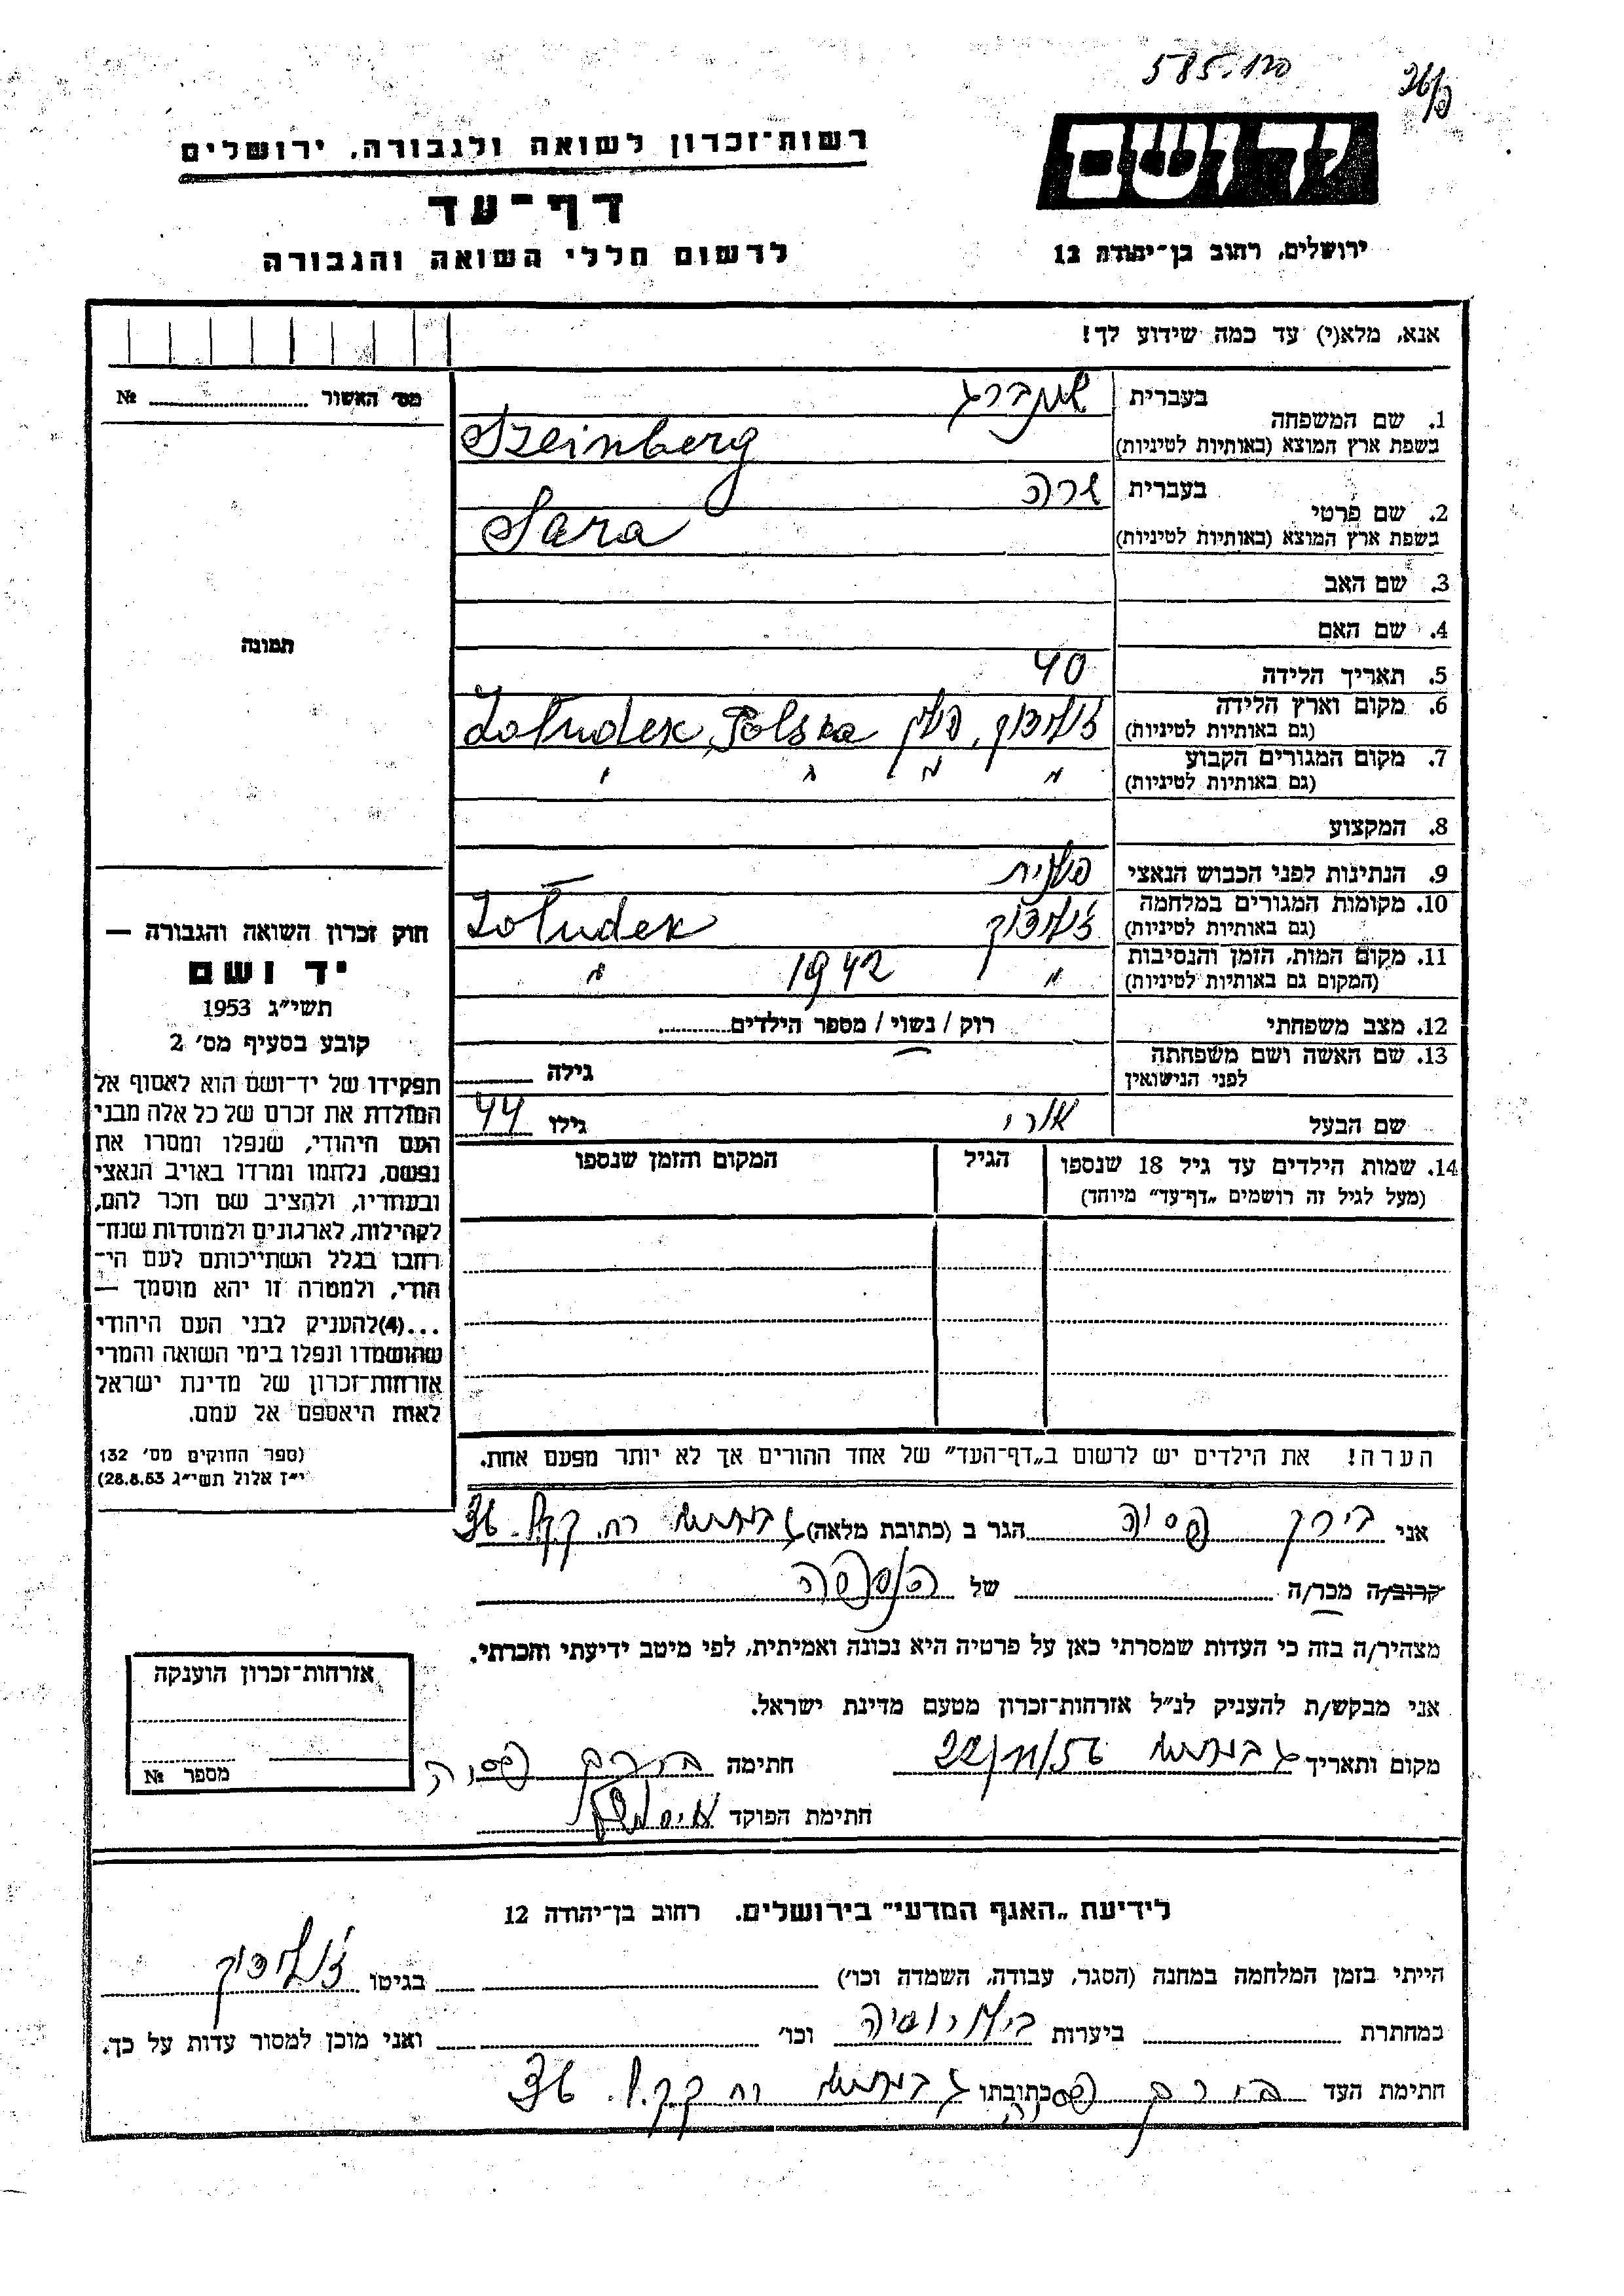 585.
יד ושם
רשות־זכרון לשואה ולגבורה, ירושלים
דף־עד
ירושלים, רחוב בן־יהודה 12
לרשום חללי השואה והגבורה
אנא, מלא(י) עד כמה שידוע לך!
מס׳ האשור № 
1. שם המשפחה בעברית שינברג
בשפת ארץ המוצא (באותיות לטיניות) Szeinberg
2. שם פרטי בעברית שרה
בשפת ארץ המוצא (באותיות לטיניות) Sara
3. שם האב
4. שם האם
תמונה
5. תאריך הלידה 40
6. מקום וארץ הלידה (גם באותיות לטיניות) ז'ולודוק, פולין Żołudek, Polska
7. מקום המגורים הקבוע (גם באותיות לטיניות) " " " "
8. המקצוע
9. הנתינות לפני הכבוש הנאצי פולנית
10. מקומות המגורים במלחמה (גם באותיות לטיניות) ז'ולודוק Żołudek
11. מקום המות, הזמן והנסיבות (המקום גם באותיות לטיניות) " 1942 "
12. מצב משפחתי רוק / נשוי / מספר הילדים
13. שם האשה ושם משפחתה לפני הנישואין גילה
שם הבעל אורי גילו 44
14. שמות הילדים עד גיל 18 שנספו הגיל המקום והזמן שנספו
(מעל לגיל זה רושמים „דף־עד” מיוחד)
הערה! את הילדים יש לרשום ב„דף־העד” של אחד ההורים אך לא יותר מפעם אחת.
חוק זכרון השואה והגבורה —
יד ושם
תשי״ג 1953
קובע בסעיף מס׳ 2
תפקידו של יד־ושם הוא לאסוף אל
המולדת את זכרם של כל אלה מבני
העם היהודי, שנפלו ומסרו את
נפשם, נלחמו ומרדו באויב הנאצי
ובעוזריו, ולהציב שם וזכר להם,
לקהילות, לארגונים ולמוסדות שנח־
רבו בגלל השתייכותם לעם הי־
הודי, ולמטרה זו יהא מוסמך —
...(4)להעניק לבני העם היהודי
שהושמדו ונפלו בימי השואה והמרי
אזרחות־זכרון של מדינת ישראל
לאות היאספם אל עמם.
(ספר החוקים מס׳ 132
י״ז אלול תשי״ג 28.8.53)
אני בירן פסיה הגר ב (כתובת מלאה) גבעתיים רח. קק.ל. 36
קרוב/ה מכר/ה של הנספה
מצהיר/ה בזה כי העדות שמסרתי כאן על פרטיה היא נכונה ואמיתית, לפי מיטב ידיעתי והכרתי.
אני מבקש/ת להעניק לנ״ל אזרחות־זכרון מטעם מדינת ישראל.
מקום ותאריך גבעתיים 22/11/56 חתימה בירן פסיה
חתימת הפוקד
אזרחות־זכרון הוענקה
מספר №
לידיעת „האגף המדעי” בירושלים, רחוב בן־יהודה 12
הייתי בזמן המלחמה במחנה (הסגר, עבודה, השמדה וכו׳) בגיטו ז'ולודוק
במחתרת ביערות בילורוסיה וכו׳ ואני מוכן למסור עדות על כך.
חתימת העד בירן פסיה כתובתו גבעתיים רח קק.ל. 36